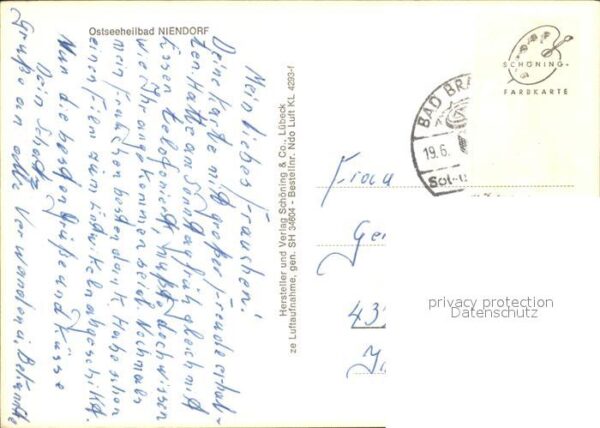 Ostseeheilbad NIENDORF
Mein liebes Frauchen!
Deine Karte mit großer Freude erhal-
ten. Hatte am Sonntag früh gleich mit
Essen telefoniert, mußte doch wissen
wie Ihr angekommen seid. Nochmals
meinen besten dank. Habe schon
einen Film zum Entwickeln abgeschickt.
Nun die besten Grüße und Küsse
Dein Schatz
Grüße an alle Verwanden u. Bekannte
Hersteller und Verlag Schöning & Co., Lübeck
ze Luftaufnahme, gen. SH 34604 Bestellnr. Ndo Luft KL 4293-f
SCHÖNING
FARBKARTE
BAD BRA
19.6.
Sol-
Frau
Ger
43
privacy protection
Datenschutz